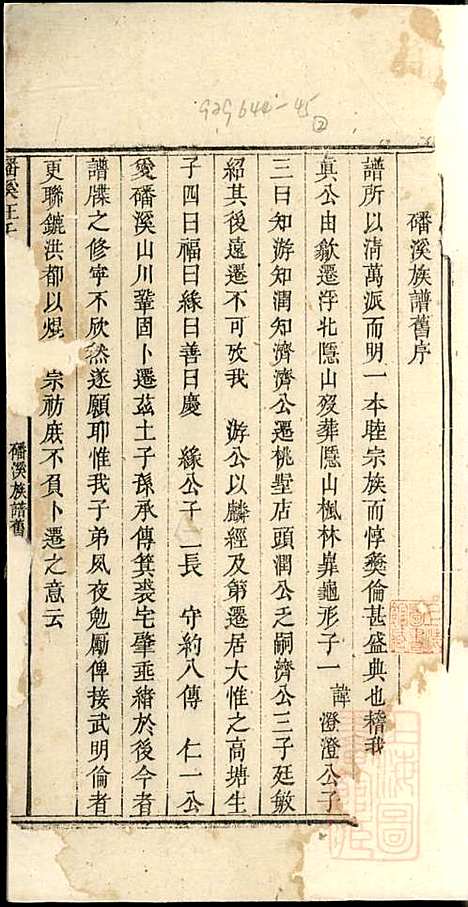 929644-45
②
磻溪族譜舊序
譜所以清萬派而明一本睦宗族而惇彜倫甚盛典也稽我
真公由歙遷浮北隱山歿葬隱山楓林崋龜形子一 諱 澄澄公子
三曰知游知潤知濟濟公遷桃墅店頭潤公之嗣濟公三子廷敏
紹其後遠遷不可攷我 游公以麟經及第遷居大惟之高塘生
子四曰福曰緣曰善曰慶 緣公子一長 守約八傳 仁一公
愛磻溪山川鞏固卜遷茲土子孫承傳箕裘宅肇垂緒於後今者
譜牒之修寧不欣然遂願耶惟我子弟夙夜勉勵俾接武明倫者
更聯鑣洪都以焜 宗祊庶不負卜遷之意云
磻溪汪
磻溪族譜舊